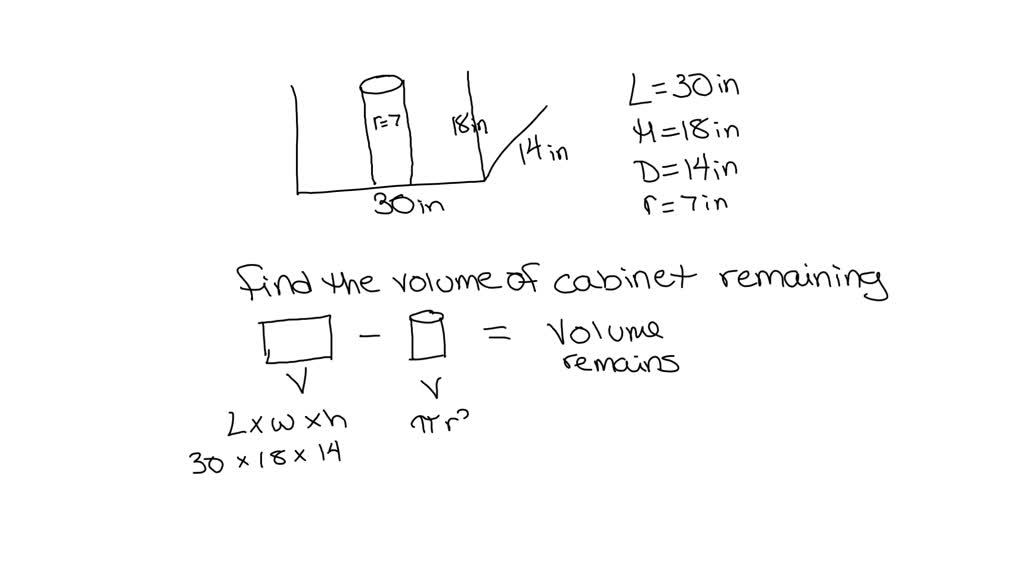 r=7
18in
14in
30in
L=30in
H=18in
D=14in
r=7in
find the volume of cabinet remaining
− = Volume
remains
V
V
L×w×h
πr²
30×18×14